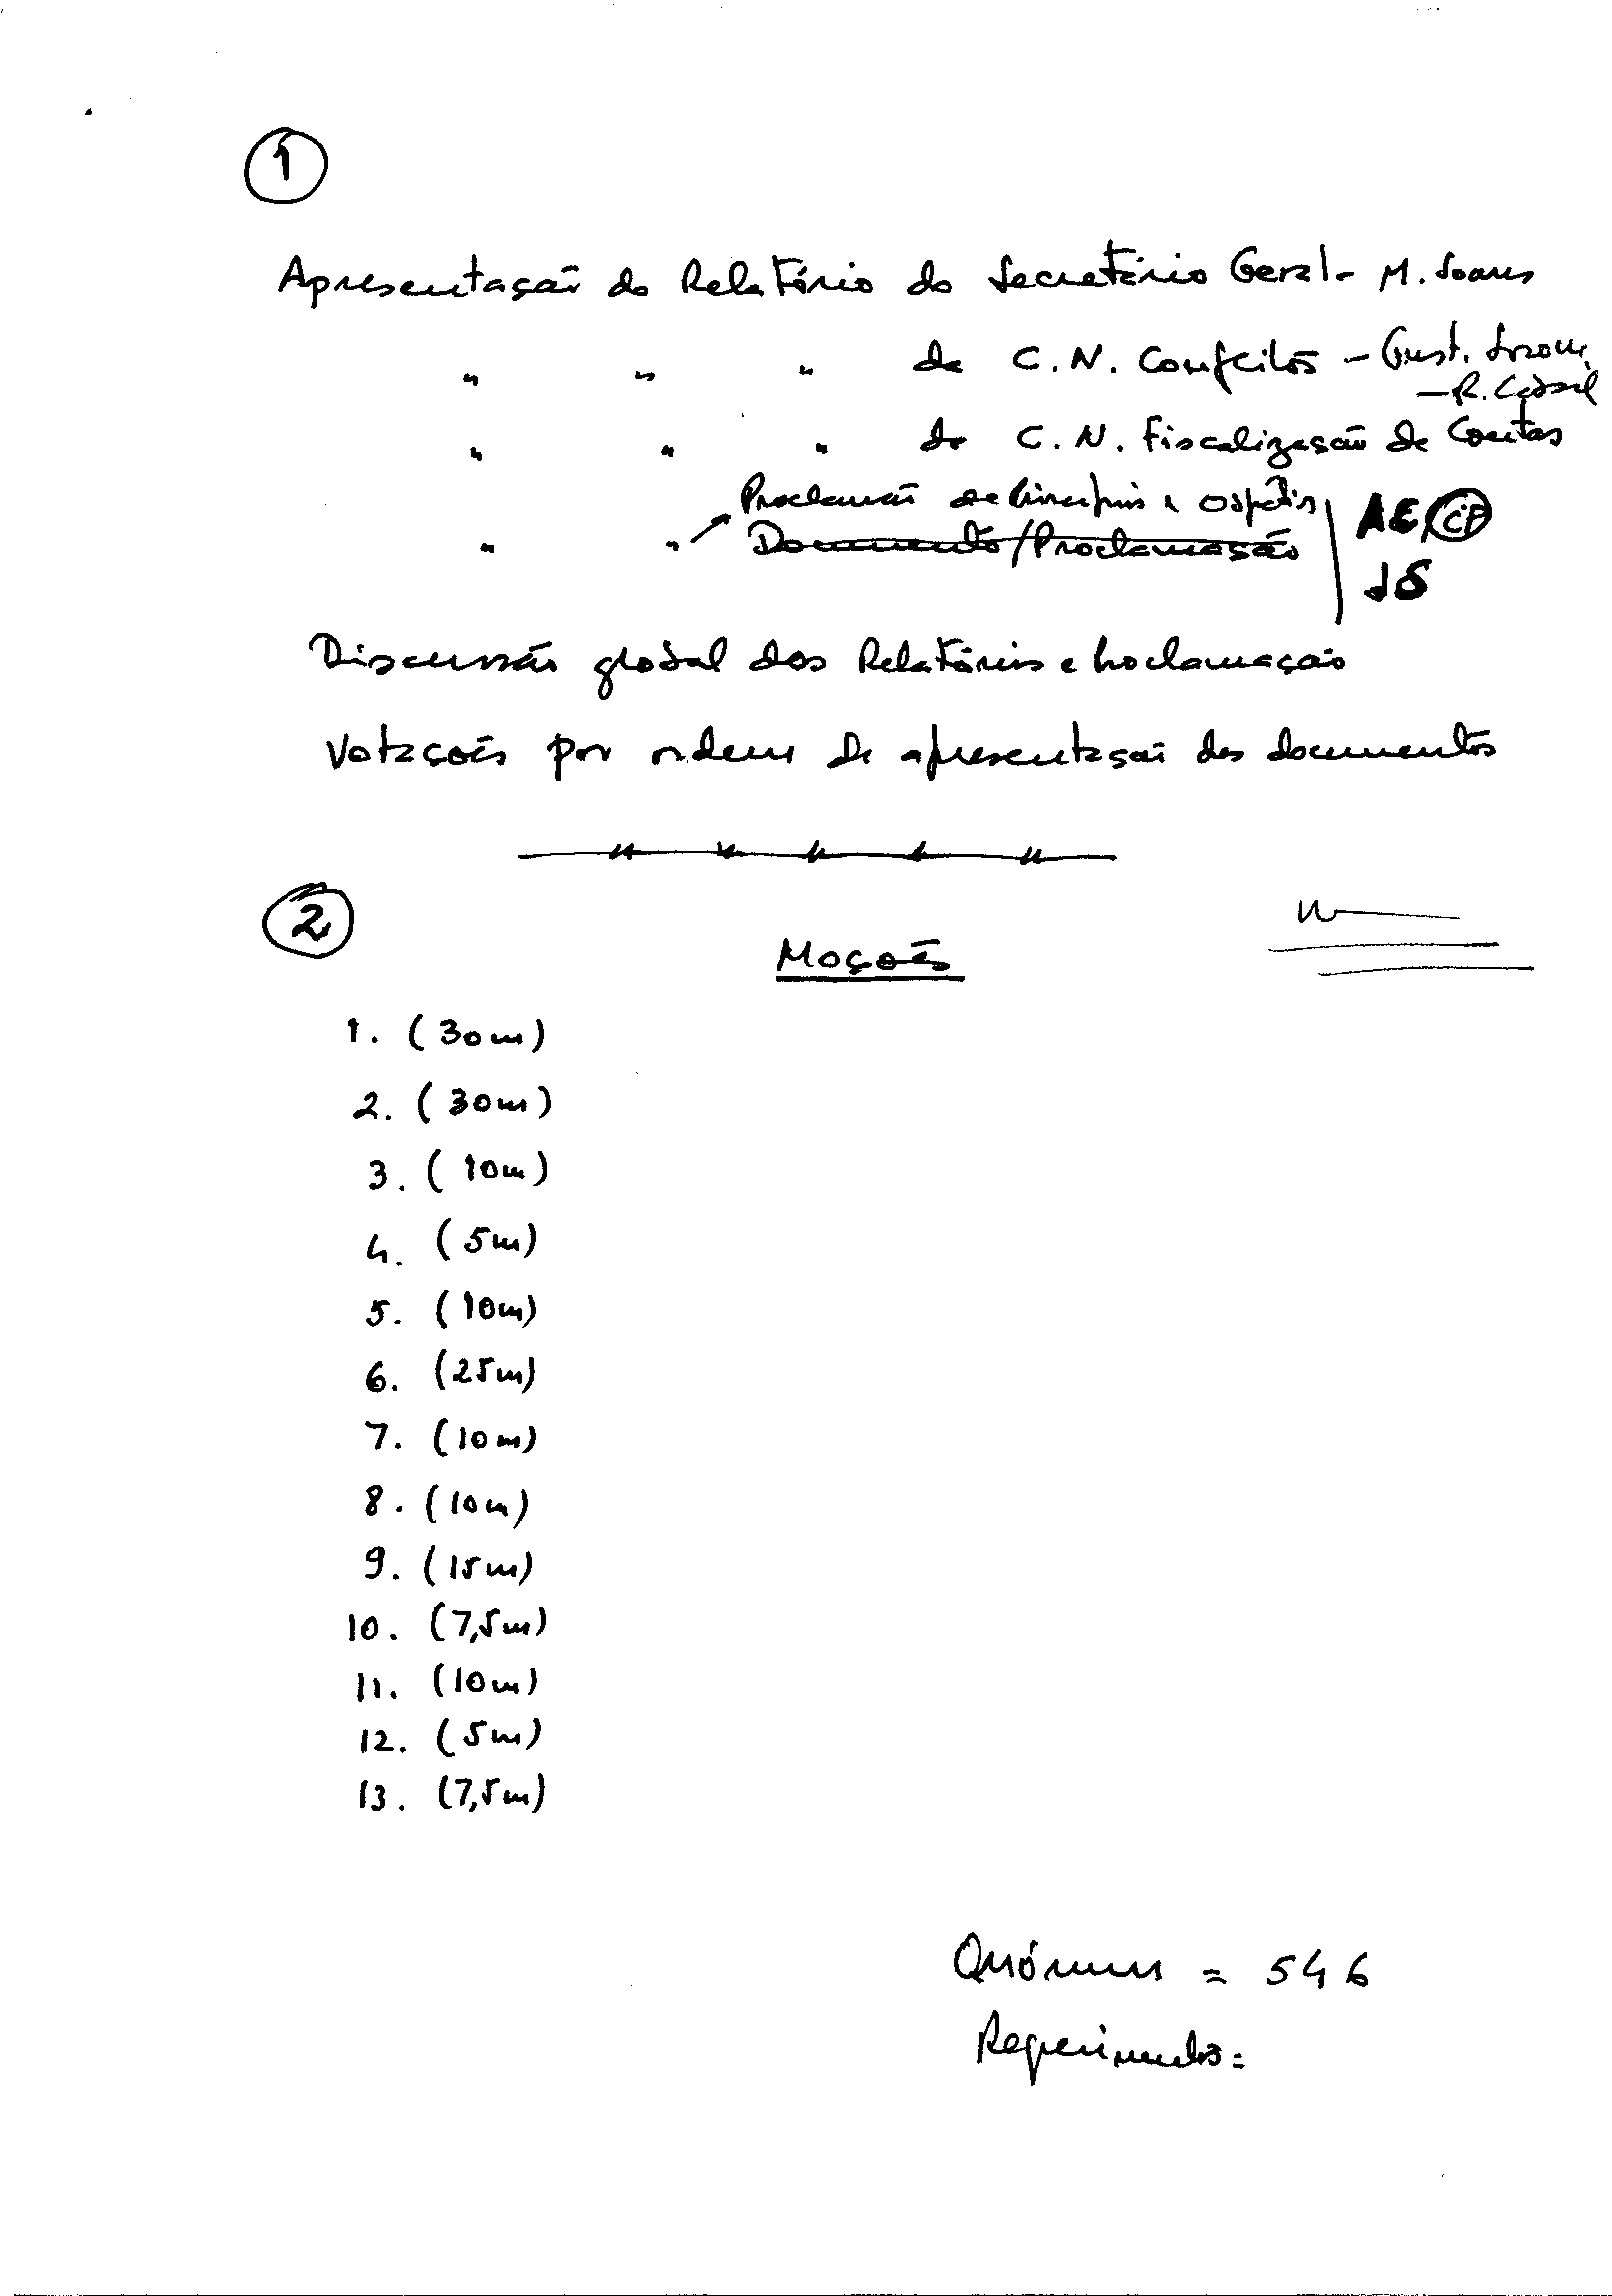 1
Apresentação do Relatório do Secretário Geral - M. Soares
" " " da C.N. Conflitos - Gust. Soromenho
- R. Cabral
" " " da C.N. Fiscalização de Contas
Proclamação de Princípios e
" " Documento/Proclamação
AE/CP
JS
Discussão global dos Relatórios e Proclamação
Votações por ordem de apresentação dos documentos
2
Moções
1. (30m)
2. (30m)
3. (10m)
4. (5m)
5. (10m)
6. (25m)
7. (10m)
8. (10m)
9. (15m)
10. (7,5m)
11. (10m)
12. (5m)
13. (7,5m)
Quórum = 546
Requerimentos =